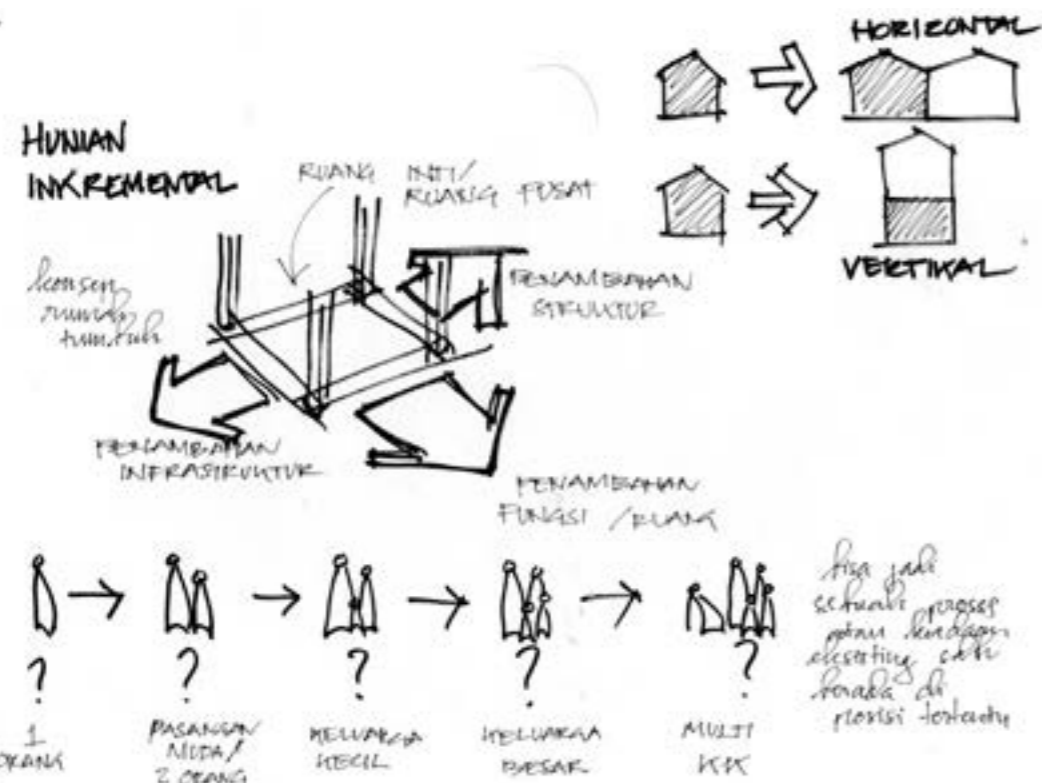 HORIZONTAL
HUNIAN
INKREMENTAL
RUANG INTI/
RUANG PUSAT
VERTIKAL
konsep
rumah
tumbuh
PENAMBAHAN
STRUKTUR
PENAMBAHAN
INFRASTRUKTUR
PENAMBAHAN
FUNGSI / RUANG
? ? ? ? ?
1
ORANG
PASANGAN
MUDA/
2 ORANG
KELUARGA
KECIL
KELUARGA
BESAR
MULTI
KK
bisa jadi
sebuah proses
berada di
posisi tertentu